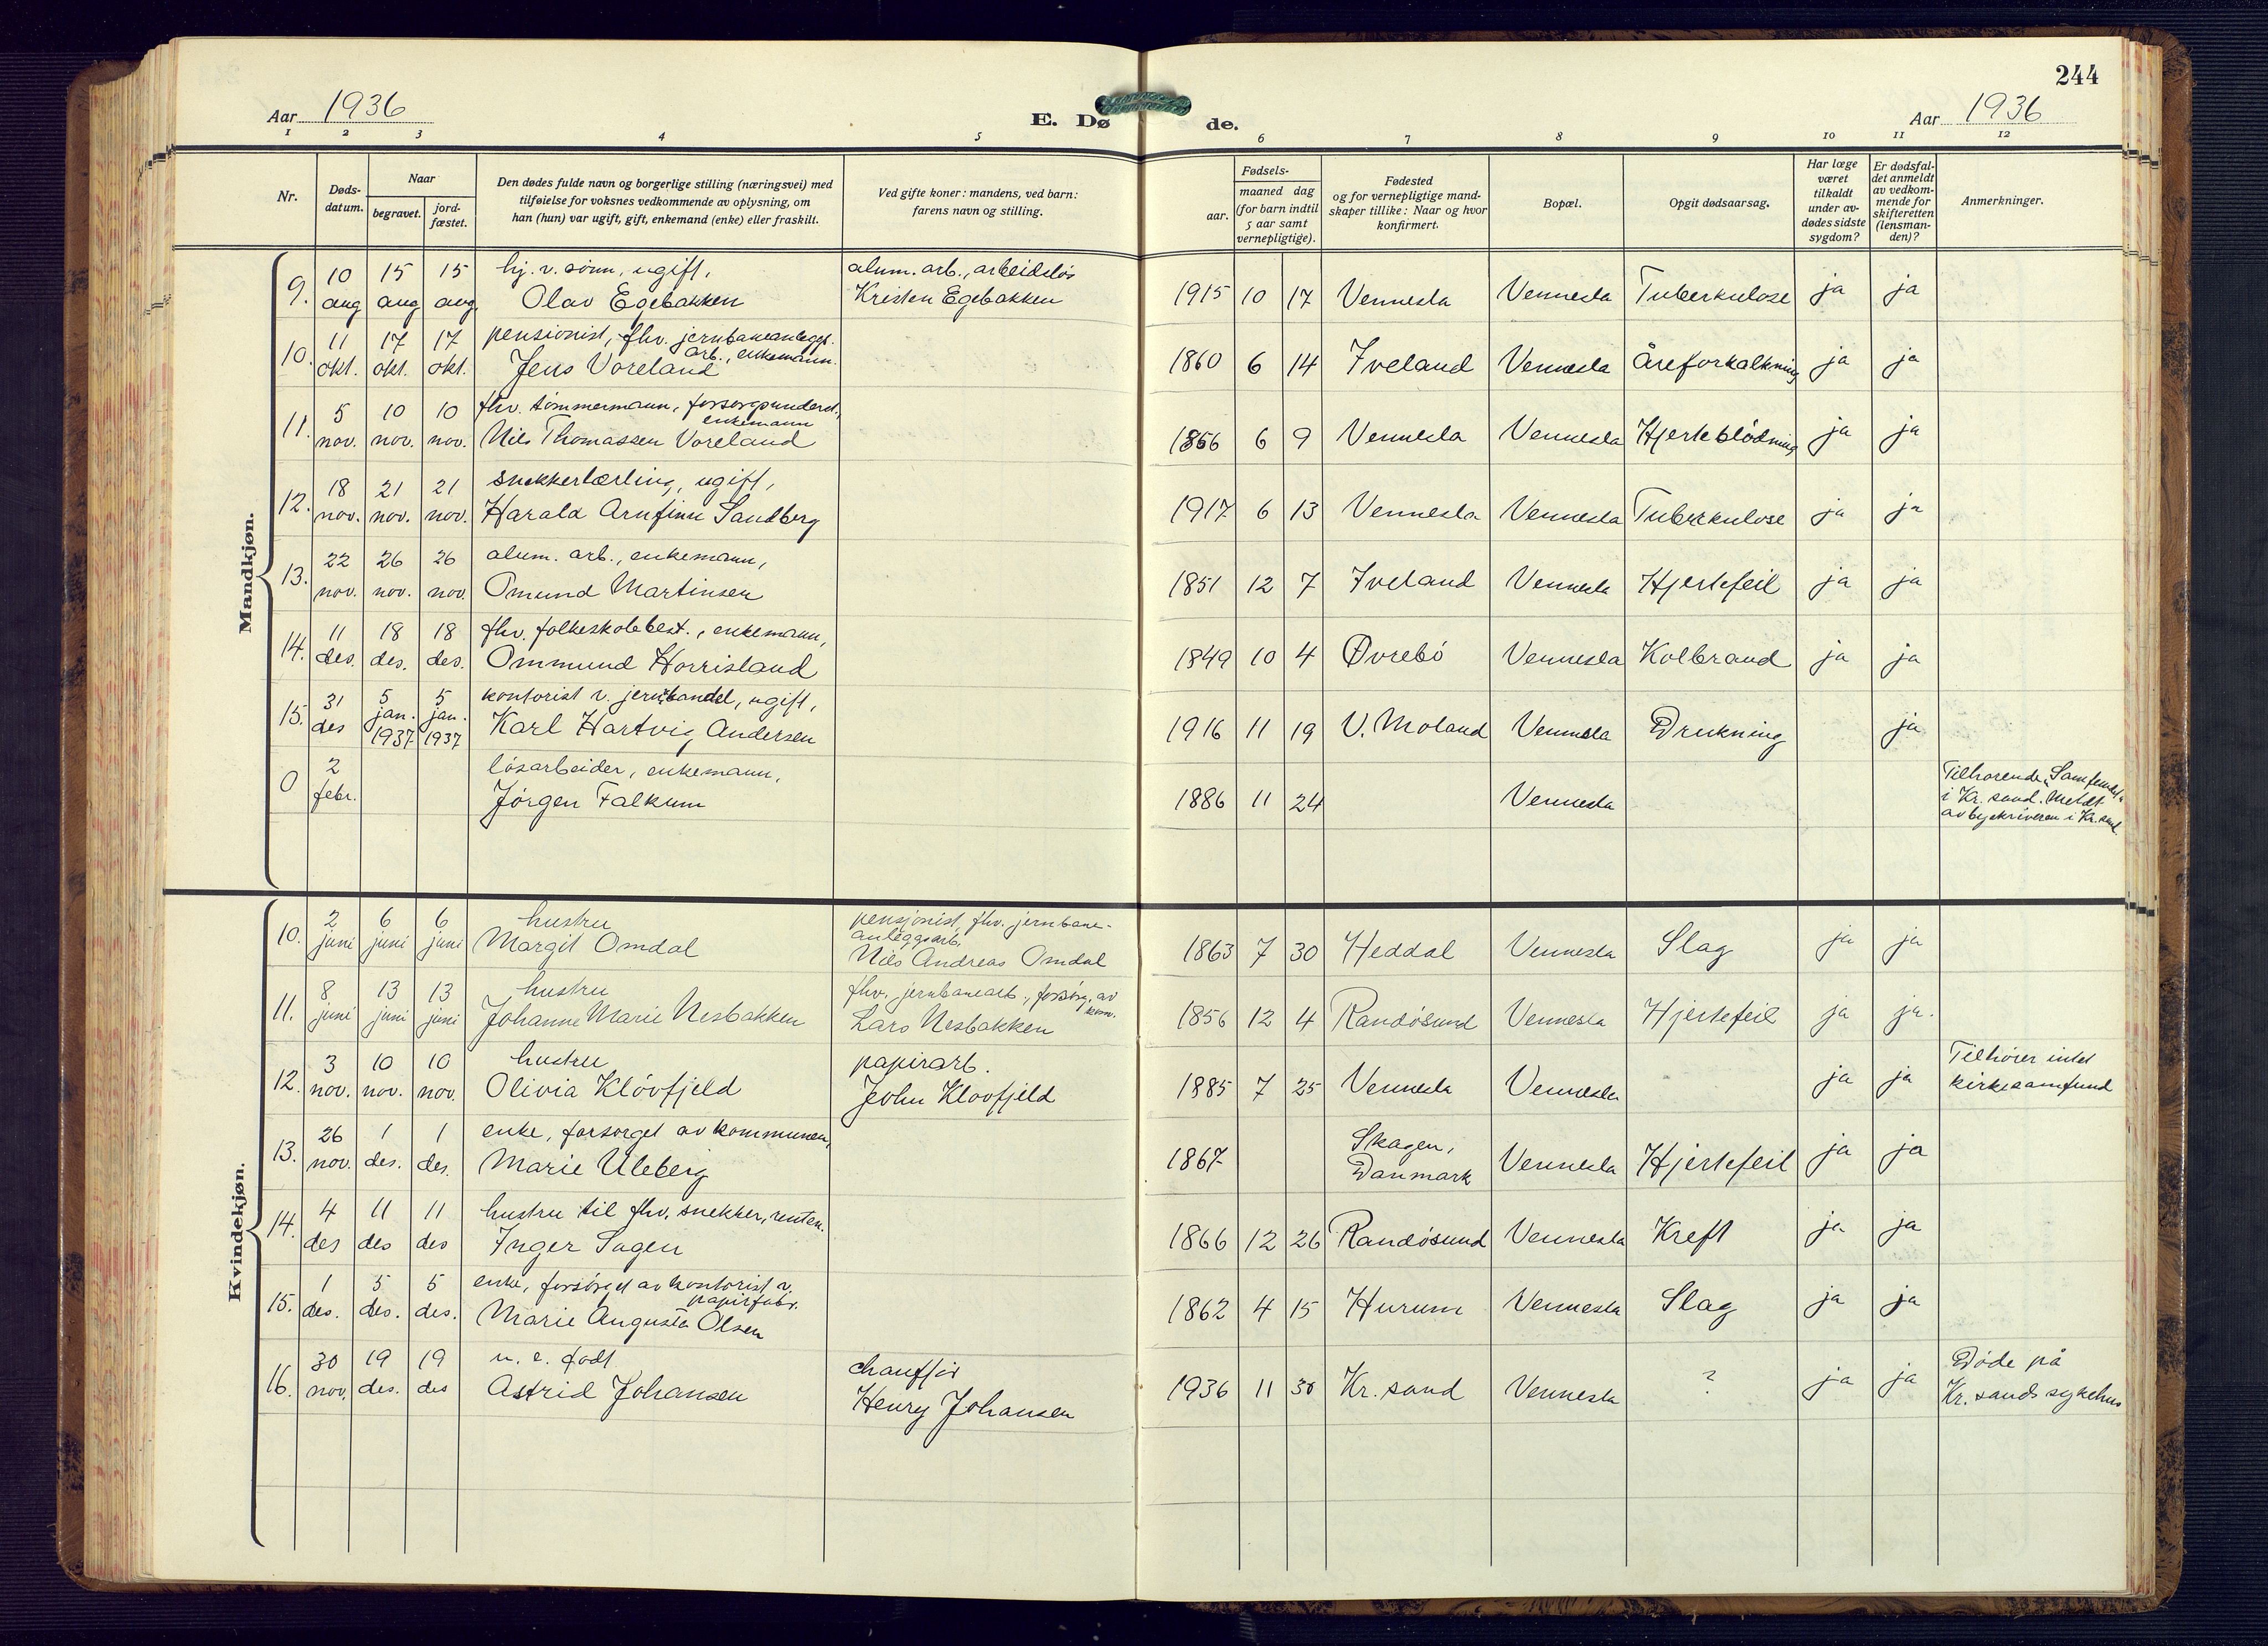 244
Aar 1936
E. Døde.
Aar 1936
1 2 3 4 5 6 7 8 9 10 11 12
Nr.
Døds-
datum.
Naar
begravet.
jord-
fæstet.
Den dødes fulde navn og borgerlige stilling (næringsvei) med
tilføielse for voksnes vedkommende av oplysning, om
han (hun) var ugift, gift, enkemand (enke) eller fraskilt.
Ved gifte koner: mandens, ved barn:
farens navn og stilling.
Fødsels-
aar.
maaned dag
(for barn indtil
5 aar samt
vernepligtige).
Fødested
og for vernepligtige mand-
skaper tillike: Naar og hvor
konfirmert.
Bopæl.
Opgit dødsaarsag.
Har læge
været
tilkaldt
under av-
dødes sidste
sygdom?
Er dødsfal-
det anmeldt
av vedkom-
mende for
skifteretten
(lensman-
den)?
Anmerkninger.
Mandkjøn.
10 15 15 hj. v. sønn, ugift, alum. arb., arbeidsløs
9. aug aug aug Olav Egebakken Kristen Egebakken 1915 10 17 Vennesla Vennesla Tuberkulose ja ja
11 17 17 pensionist, fhv. jernbaneanleggs.
arb., enkemann.
10. okt. okt. okt. Jens Voreland 1860 6 14 Iveland Vennesla Åreforkalkning ja ja
5 10 10 fhv. tømmermann, forsorgsunderst.,
enkemann
11. nov. nov. nov. Nils Thomassen Voreland 1856 6 9 Vennesla Vennesla Hjerteblødning ja ja
18 21 21 snekkerlærling, ugift,
12. nov. nov. nov. Harald Arnfinn Sandberg 1917 6 13 Vennesla Vennesla Tuberkulose ja ja
22 26 26 alum. arb., enkemann,
13. nov. nov. nov. Omund Martinsen 1851 12 7 Iveland Vennesla Hjertefeil ja ja
11 18 18 fhv. folkeskolebest., enkemann,
14. des. des. des. Ommund Horrisland 1849 10 4 Øvrebø Vennesla Kolbrand ja ja
31 5 5 kontorist v. jernhandel, ugift,
15. des jan. jan. Karl Hartvig Andersen 1916 11 19 V. Moland Vennesla Drukning ja
1937 1937
2 løsarbeider, enkemann,
0 febr. Jørgen Falkum 1886 11 24 Vennesla
Tilhørende "Samfundet"
i Kr. sand. Meldt
av byskriveren i Kr. sand.
Kvindekjøn.
2 6 6 hustru pensjonist, fhv. jernbane-
anleggsarb.
10. juni juni juni Margit Omdal Nils Andreas Omdal 1863 7 30 Heddal Vennesla Slag ja ja
8 13 13 hustru fhv. jernbanearb., forsørg. av
kom.
11. juni juni juni Johanne Marie Nesbakken Lars Nesbakken 1856 12 4 Randøsund Vennesla Hjertefeil ja ja.
3 10 10 hustru papirarb.
12. nov. nov. nov. Olivia Kløvfjeld John Kløvfjeld 1885 7 25 Vennesla Vennesla ja ja
Tilhører intet
kirkesamfund
26 1 1 enke, forsørget av kommunen,
13. nov. des. des. Marie Uleberg 1867 Skagen,
Danmark Vennesla Hjertefeil ja ja
4 11 11 hustru til fhv. snekker, renten.
14. des des des Inger Sagen 1866 12 26 Randøsund Vennesla Kreft ja ja
1 5 5 enke, forsørget av kontorist v.
papirfabr.
15. des. des. des. Marie Augusta Olsen 1862 4 15 Hurum Vennesla Slag ja ja
30 19 19 u. e. født chauffør
16. nov. des. des Astrid Johansen Henry Johansen 1936 11 30 Kr. sand Vennesla ? ja ja
Døde på
Kr. sands sykehus